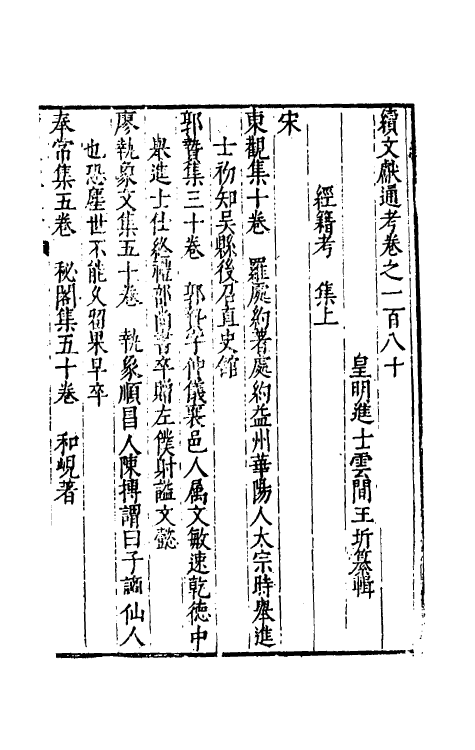 續文獻通考卷之一百八十
皇明進士雲間王圻纂輯
經籍考 集上
宋
東觀集十卷 羅處約著處約益州華陽人太宗時舉進
士初知吳縣後召直史館
郭贄集三十卷 郭贄字仲儀襄邑人屬文敏速乾德中
舉進士仕終禮部尚書卒贈左僕射謚文懿
廖執象文集五十卷 執象順昌人陳摶謂曰子謫仙人
也恐塵世不能久留果早卒
奉常集五卷 秘閣集五十卷 和峴著